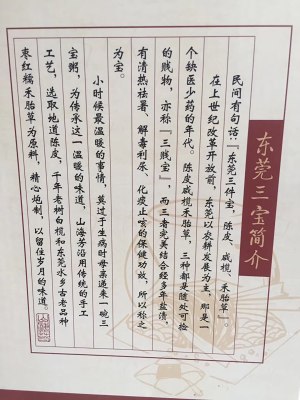 东莞三宝简介
民间有句话:『东莞三件宝,陈皮、咸榄、禾胎草』。
在上世纪改革开放前,东莞以农耕发展为主,那是一
个缺医少药的年代。陈皮咸榄禾胎草,三种都是随处可捡
的贱物,亦称『三贱宝』,而三者完美结合经多年盐渍,
有清热祛暑、解毒利尿、化痰止咳的保健功效,所以称之
为宝。
小时候最温暖的事情,莫过于生病时母亲递来一碗三
宝粥,为传承这一温暖的味道,山海芳沿用传统的手工
工艺,选取地道陈皮,千年老树白榄和东莞水乡古老品种
枣红糯禾胎草为原料,精心炮制,以留住岁月的味道。